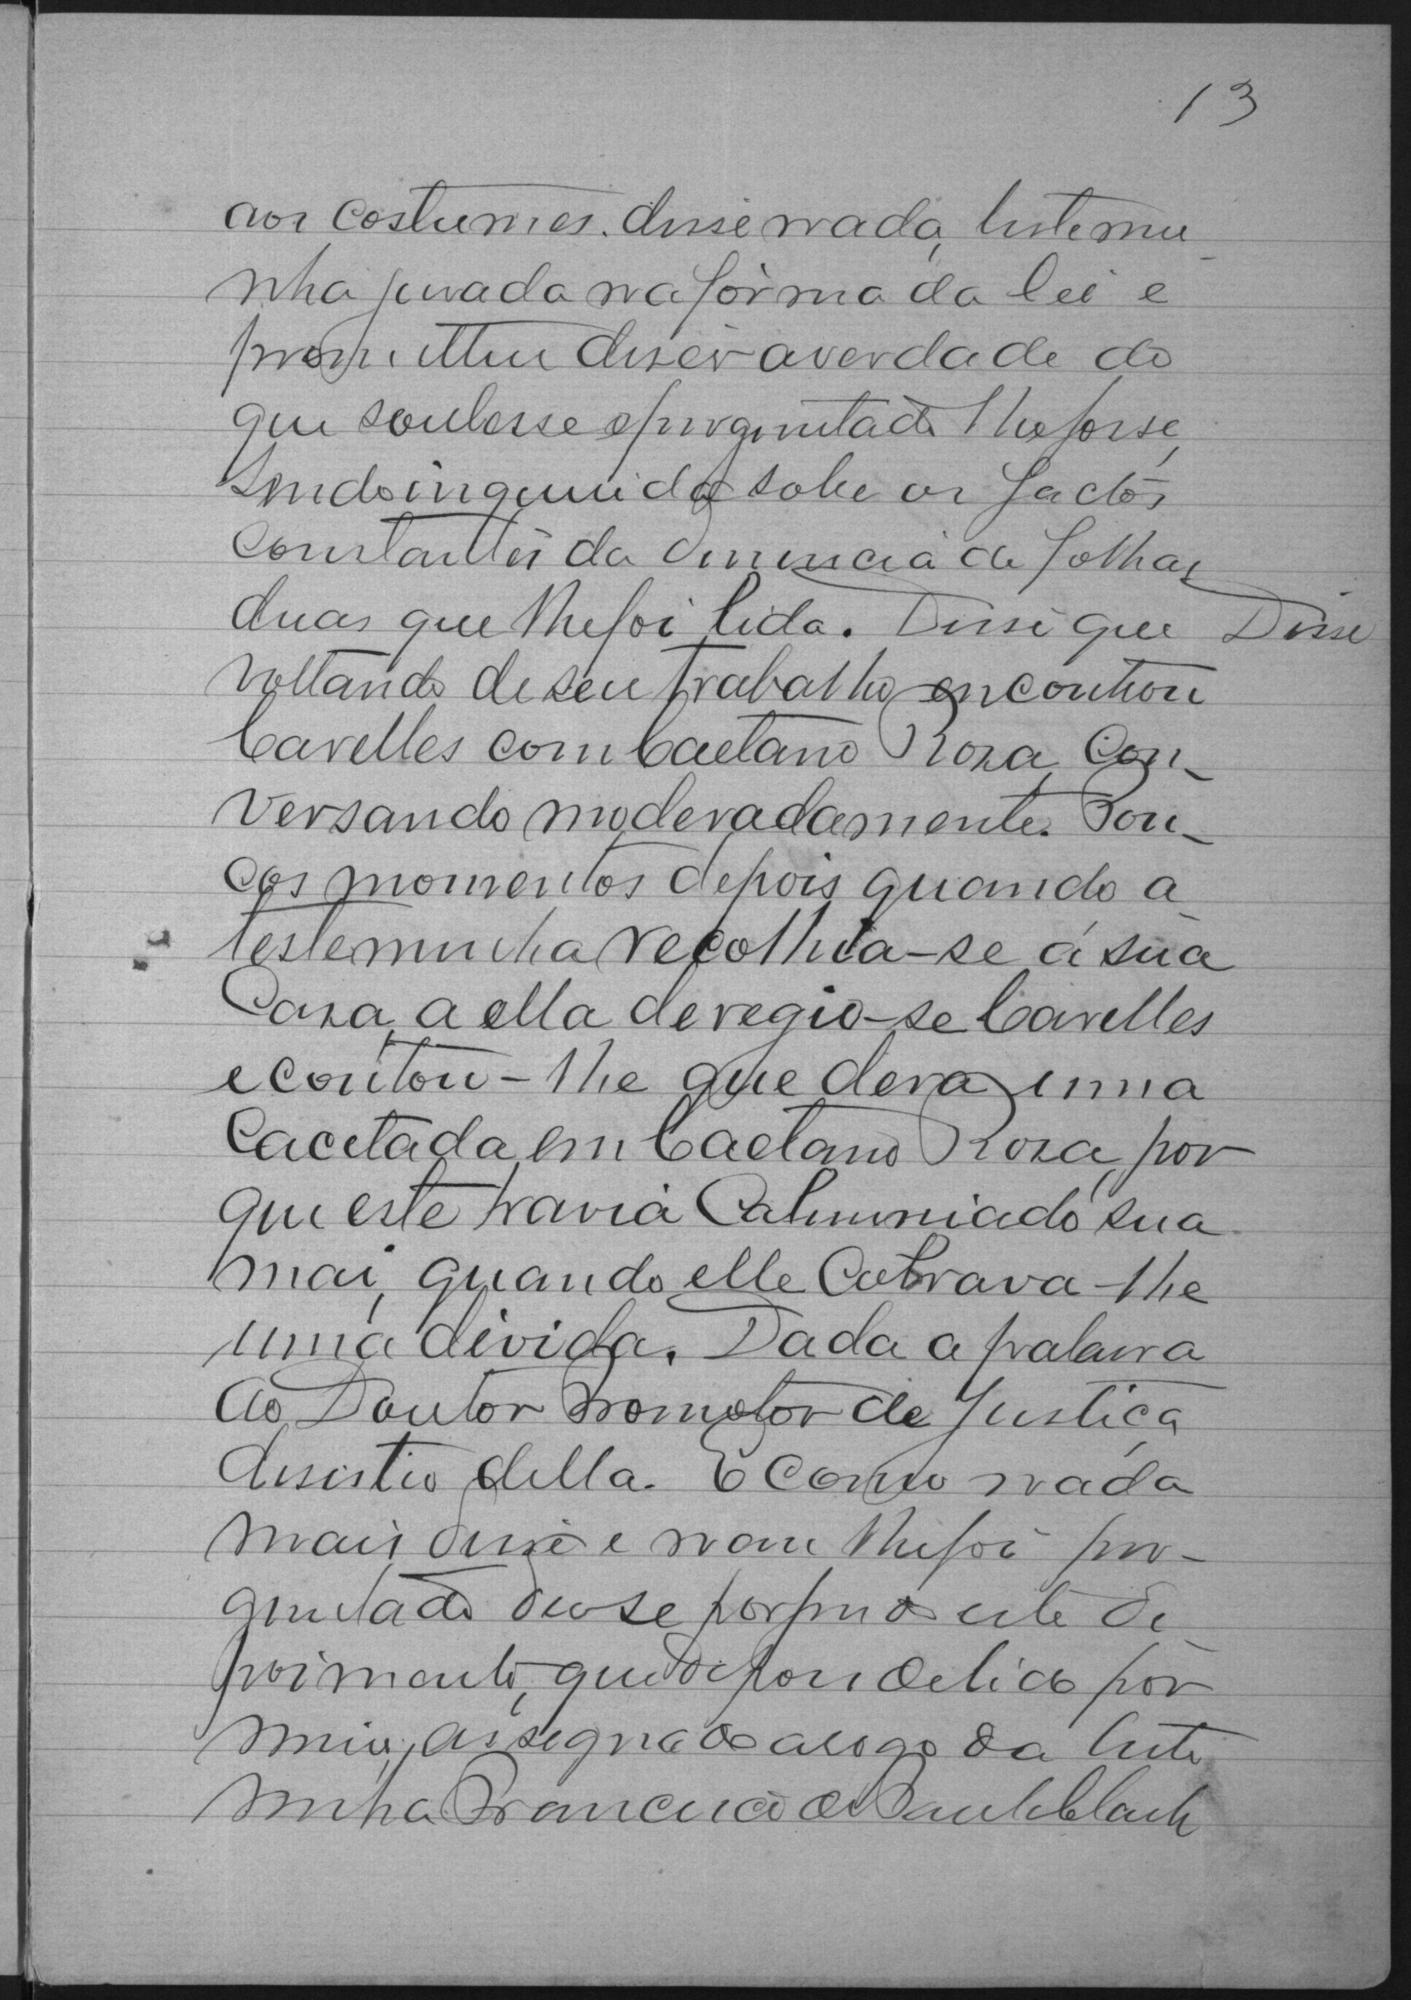 13
aos costumes. disse nada, testemu-
nha jurada na fórma da lei e
prometteu diser a verdade do
que soubesse e perguntado lhe fosse,
sendo inquerida sobre os factos
constantes da denuncia de folhas
duas que lhe foi lida. Disse que Disse
voltando de seu trabalho encontrou
Carelles com Caetano Roza, con-
versando moderadamente. Pou-
cos momentos depois quando a
testemunha recolhia-se á sua
Caza, a ella deregio-se Carelles
e contou-lhe que dera uma
Cacetada em Caetano Roza, por
que este havia Calumniado sua
mai, quando elle Cobrava-lhe
uma divida. Dada a palavra
ao Doutor Promotor de Justiça,
disistio della. E como nada
mais disse e nem lhe foi per-
guntado deu se por findo este de
poimento, que depois de lido por
mim, assegnado arogo da teste
munha Francisco de